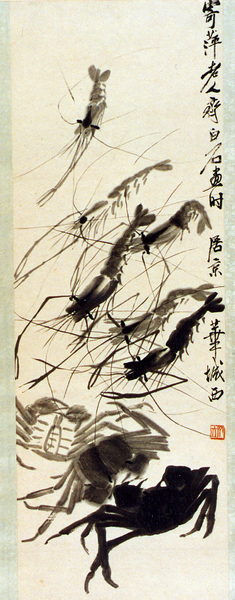 寄萍老人齊白石畫時居京華城西